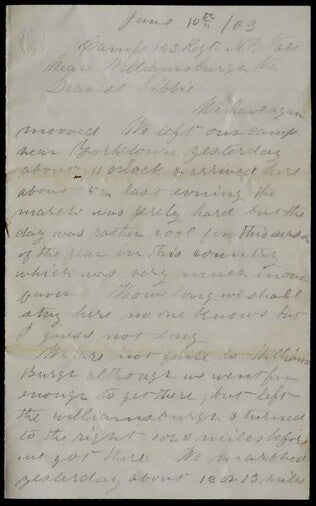 June 10th /63
Camp 143 Regt N.Y. Vols
Near Williamsburgh Va
Dearest Libbie
We have again
mooved We left our camp
near Yorktown yesterday
about 11 oclock & arrived here
about 5 in last evening the
march was prety hard but the
day was rather cool for this season
of the year in this country
which was very much in our
favor How long we shall
stay here no one knows but
I guess not long
We are not quite to Williams
Burgh although we went far
enough to get there, but left
the williamsburgh & turned
to the right 1 or 2 miles before
we got there We marched
yesterday about 12 or 13 miles